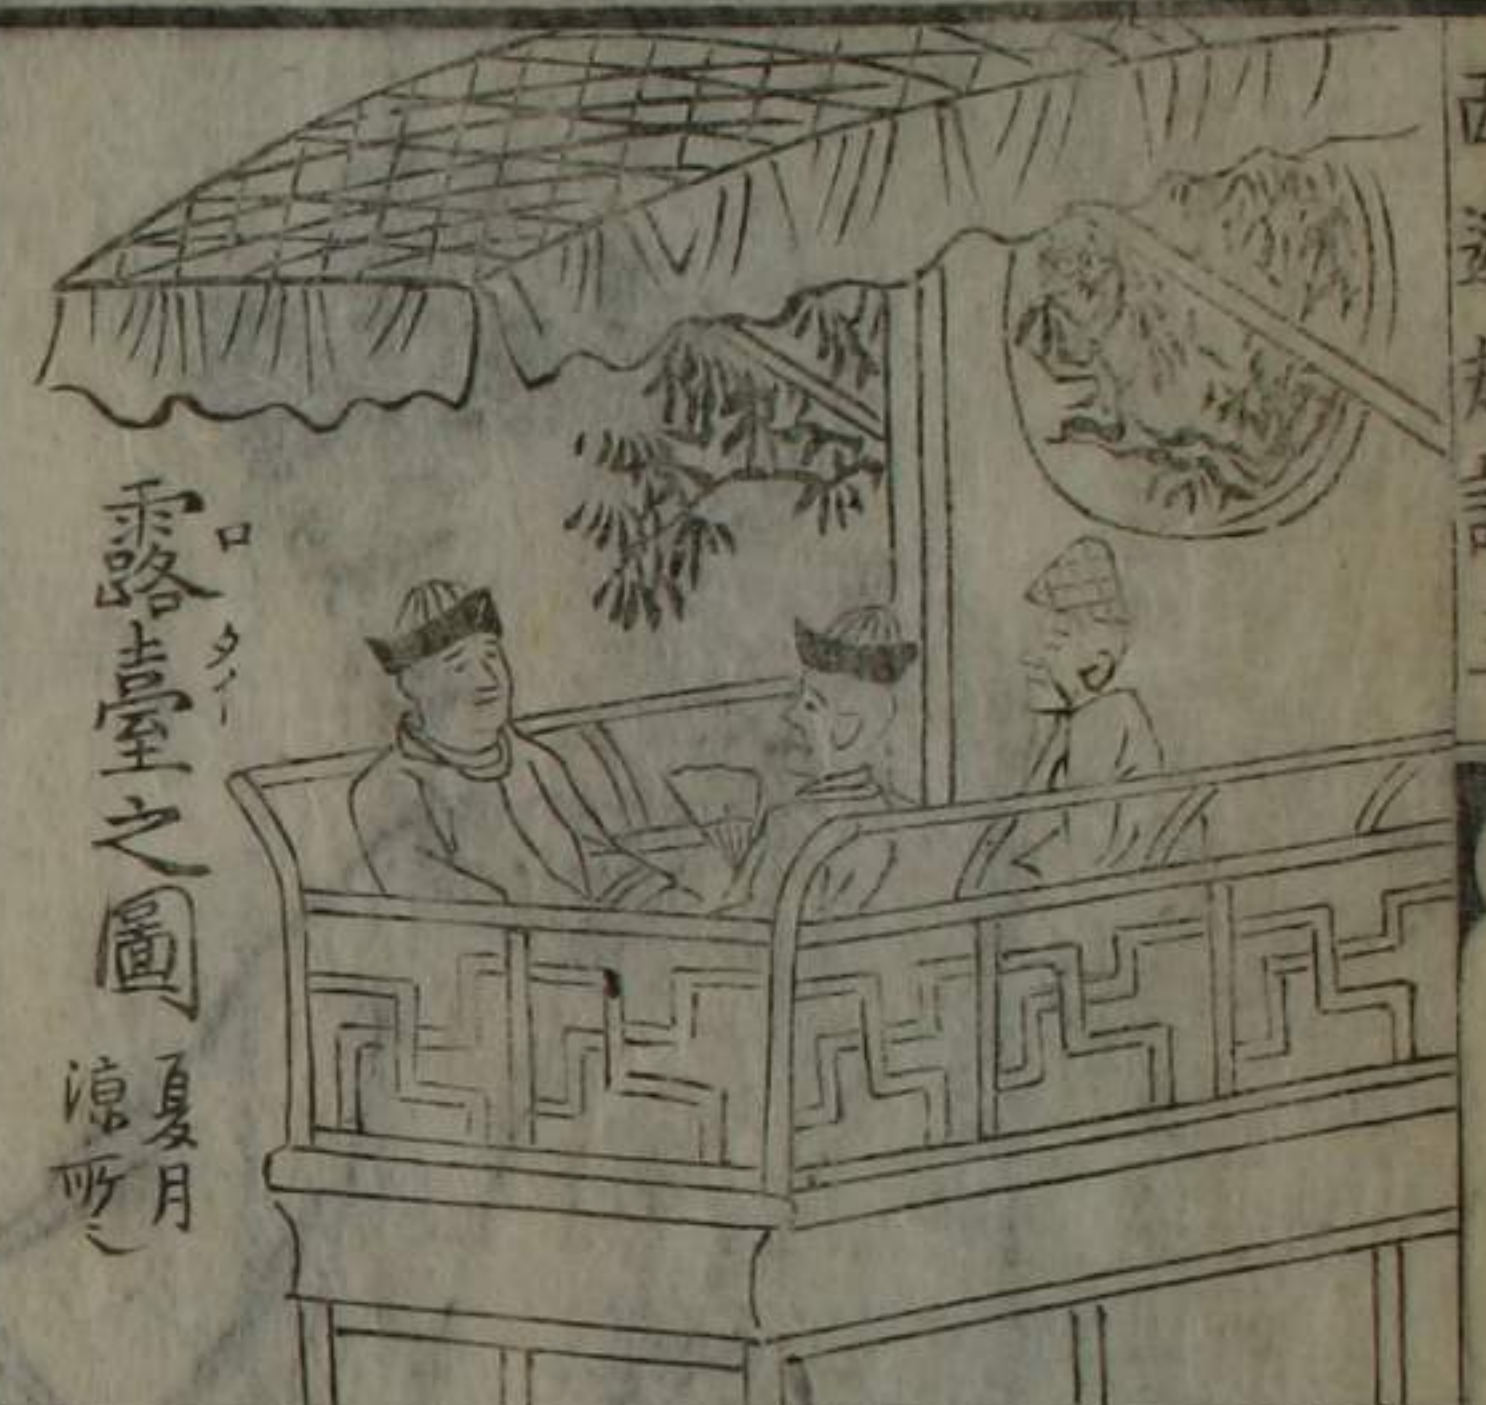 露臺之圖
ロタイー
夏月
涼所也